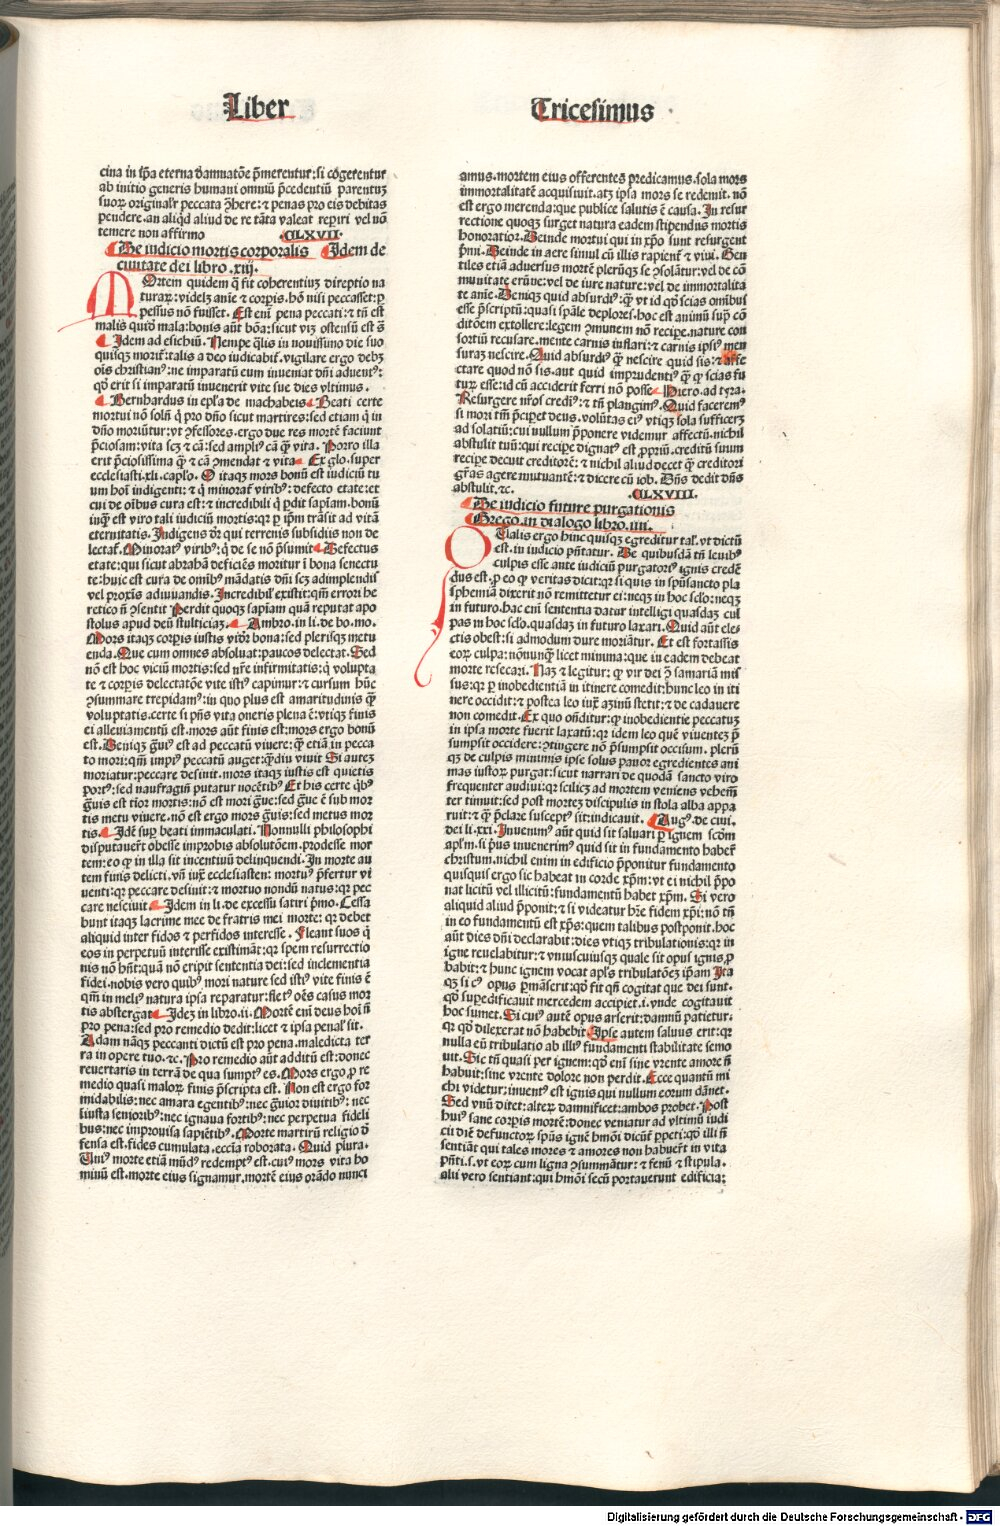 Liber
Tricesimus
cina in ip̄a eterna dānatōe p̄merentur: si cōgerentur
ab initio generis humani omniū p̄cedentiū parentuꝫ
suoꝝ originalr̄ peccata ꝯhere: ⁊ penas pro eis debitas
pendere. an aliqd̄ aliud de re tāta valeat repiri vel nō
temere non affirmo
CLXVII.
De iudicio mortis corporalis Idem de
ciuitate dei libro .xiij.
MOrtem quidem q̄ fit coherentiuꝫ direptio na
turaꝝ: videlꝫ anīe ⁊ corpis. hō nisi peccasset: p
pessus nō fuisset. Est em̄ pena peccati: ⁊ tn̄ est
malis quidē mala: bonis aūt bōa: sicut viꝫ ostensū est s̄
Idem ad esichiū. Nempe q̄lis in nouissimo die suo
quisqꝫ moriť: talis a deo iudicabiť. vigilare ergo debꝫ
oīs christianꝰ: ne imparatū eum inueniat dn̄i aduentꝰ:
qd̄ erit si imparatū inuenerit vite sue dies vltimus.
Bernhardus in epl̄a de machabeis Beati certe
mortui nō solū q̄ pro dn̄o sicut martires: sed etiam q̄ in
dn̄o moriūtur: vt ꝯfessores. ergo due res mortē faciunt
p̄ciosam: vita scꝫ ⁊ cā: sed ampliꝰ cā q̄ꝫ vita. Porro illa
erit p̄ciosissima q̄ꝫ ⁊ cā ꝯmendat ⁊ vita Ex glo. super
ecclesiasti. xli. caplo. O itaqꝫ mors bonū est iudiciū tu
um hoī indigenti: ⁊ q̄ minorať viribꝰ: defecto etate: et
cui de oībus cura est: ⁊ incredibili q̄ pdit sapiam. bonū
inqꝫ est viro tali iudiciū mortis: qꝛ p ip̄m trāsit ad vitā
eternitatis. Indigens dr̄ qui terrenis subsidiis non de
lectaf. Minoraf viribꝰ: q̄ de se nō p̄sumit Defectus
etate: qui sicut abrahā deficiēs moritur ī bona senectu
te: huic est cura de omībꝰ mādatis dn̄i scꝫ adimplendis
vel proxīs adiuuandis. Incredibil' existit: qm̄ errori he
retico nō ꝯsentit Perdit quoqꝫ sapīam quā reputat apo
stolus apud deū stulticiaꝫ. Ambro. in li. de bo. mo.
Mors itaqꝫ corpis iustis videt bona: sed plerisqꝫ metu
enda. Que cum omnes absoluat: paucos delectat. Sed
nō est hoc viciū mortis: sed nr̄e infirmitatis: q̄ volupta
te ⁊ corpis delectatōe vite istiꝰ capimur: ⁊ cursum hūc
ꝯsummare trepidamꝰ: in quo plus est amaritudinis q̄ꝫ
voluptatis. certe si pn̄s vita oneris plena ē: vtiqꝫ finis
ei alleuiamentū est. mors aūt finis est: mors ergo bonū
est. Deniqꝫ gūiꝰ est ad peccatū viuere: q̄ꝫ etiā in pecca
to mori: qm̄ impiꝰ peccatū auget: q̄ꝫdiu viuit Si auteꝫ
moriatur: peccare desinit. mors itaqꝫ iustis est quietis
portꝰ: sed naufragiū putatur nocētibꝰ Et his certe qbꝰ
gūis est tīor mortis: nō est mori gūe: sed gūe ē sub mor
tis metu viuere. nō est ergo mors gūis: sed metus mor
tis. Idē sup beati immaculati. Nonnulli philosophi
disputauerūt obesse improbis absolutōem. prodesse mor
tem: eo q̄ in illa sit incentiuū delinquendi. In morte au
tem finis delicti. vn̄ iuxta ecclesiasten: mortuꝰ p̄fertur vi
uenti: qꝛ peccare desinit: ⁊ mortuo nondū natus: qꝛ pec
care nesciuit. Idem in li. de excessu satiri p̄mo. Cessa
bunt itaqꝫ lacrime mee de fratris mei morte: qꝛ debet
aliquid inter fidos ⁊ perfidos interesse. Fleant suos q̄
eos in perpetuū interisse existimāt: qꝛ spem resurrectio
nis nō hn̄t: quā nō eripit sententia dei: sed inclementia
fidei. nobis vero quibꝰ mori nature sed istiꝰ vite finis ē
qm̄ in meliꝰ natura ipsa reparatur: fletꝰ oēs casus mor
tis abstergat Ideꝫ in libro .ii. Mortē em̄ deus hoī nō
pro pena: sed pro remedio dedit: licet ⁊ ipsa penal' sit.
Adam nāqꝫ peccanti dictū est pro pena. maledicta ter
ra in opere tuo. ⁊c. Pro remedio aūt additū est: donec
reuertaris in terrā de qua sumptꝰ es. Mors ergo pro re
medio quasi maloꝝ finis p̄scripta est. Non est ergo for
midabilis: nec amara egentibꝰ: nec gūior diuitibꝰ: nec
iniusta senioribꝰ: nec ignaua fortibꝰ: nec perpetua fideli
bus: nec improuisa sapiētibꝰ. Morte martirū religio d̄
fensa est. fides cumulata. ecc̄ia roborata. Quid plura.
Uniꝰ morte etiā mūdꝰ redemptꝰ est. cuiꝰ mors vita ho
minū est. morte eius signamur. mortē eius orādo nunci
amus. mortem eius offerentes predicamus. sola mors
immortalitatē acquisiuit. atqꝫ ipsa mors se redemit. nō
est ergo merenda: que publice salutis ē causa. In resur
rectione quoqꝫ surget natura eadem stipendus mortis
honoratior. Deinde mortui qui in xp̄o sunt resurgent
p̄mi. Deinde in aere simul cū illis rapient̄ ⁊ viui. Gen
tiles etiā aduersus mortē plerūqꝫ se ꝯsolātur: vel de cō
munitate erūne: vel de iure nature: vel de immortalita
te anīe. Deniqꝫ quid absurdiꝰ: q̄ꝫ vt id qd̄ scias omībus
esse p̄scriptū: quasi sp̄ale deplores. hoc est animū sup cō
ditōem extollere: legem ꝯmunem nō recipe. nature con
sortiū recusare. mente carnis inflari: ⁊ carnis ipsiꝰ men
suraꝫ nescire. Quid absurdiꝰ q̄ꝫ nescire quid sis: ⁊ affe
ctare quod nō sis. aut quid imprudentiꝰ q̄ꝫ q̄ scias fu
tuꝝ esse: id cū acciderit ferri nō posse Hiero. ad tyra.
Resurgere nr̄os credīꝰ: ⁊ tn̄ plangimꝰ. Quid faceremꝰ
si mori tm̄ p̄ciperet deus. volūtas eiꝰ vtiqꝫ sola sufficeret
ad solatiū: cui nullum p̄ponere videmur affectū. nichil
abstulit tuū: qui recipe dignatꝰ est ppriū. creditū suum
recipe decuit creditorē: ⁊ nichil aliud decet q̄ꝫ creditori
grās agere mutuantē: ⁊ dicere cū iob. Dn̄s dedit dn̄s
abstulit. ⁊c.
CLXVIII.
De iudicio future purgationis
Grego. in dialogo libro .iiii.
QUalis ergo hinc quisqꝫ egreditur tal'. vt dictū
est. in iudicio pn̄tatur. De quibusdā tn̄ leuibꝰ
culpis esse ante iudiciū purgatoriꝰ ignis credē
dus est. p eo q̄ veritas dicit: qꝛ si quis in spūsancto bla
sphemiā dixerit non remittetur ei: neqꝫ in hoc sclo: neqꝫ
in futuro. hac em̄ sententia datur intelligi quasdaꝫ cul
pas in hoc sclo. quasdaꝫ in futuro laxari. Quid aūt ele
ctis obest: si admodum dure moriātur. Et est fortassis
eoꝝ culpa: nōnunqꝫ licet minima: que in eadem debeat
morte resecari. Naꝫ ⁊ legitur: q̄ vir dei ꝯ samariā mis
sus: qꝛ p inobedientiā in itinere comedit: hunc leo in iti
nere occidit: ⁊ postea leo iuxta azinū stetit: ⁊ de cadauere
non comedit. Ex quo ondītur: q̄ inobedientie peccatuꝫ
in ipsa morte fuerit laxatū: qꝛ idem leo quē viuenteꝫ p̄
sumpsit occidere: ꝯtingere nō p̄sumpsit occisum. plerū
qꝫ de culpis minimis ipse solus pauor egredientes ani
mas iustoꝝ purgat: sicut narrari de quodā sancto viro
frequenter audiui: qꝛ scilicꝫ ad mortem veniens vehemē
ter timuit: sed post morteꝫ discipulis in stola alba appa
ruit: ⁊ q̄ꝫ p̄clare susceptꝰ sit: indicauit. Augꝰ. de ciui.
dei li. xxi. Inuenimꝰ aūt quid sit saluari p ignem scd̄m
apl̄m. si pꝰus inuenerimꝰ quid sit in fundamento habere
christum. nichil enim in edificio p̄ponitur fundamento
quisquis ergo sic habeat in corde xp̄m: vt ei nichil p̄po
nat licitū vel illicitū: fundamentū habet xp̄m. Si vero
aliquid aliud p̄ponit: ⁊ si videatur hr̄e fidem xp̄i: nō tn̄
in eo fundamentū est xp̄s: quem talibus postponit. hoc
aūt dies dn̄i declarabit: dies vtiqꝫ tribulationis: qꝛ in
igne reuelabitur: ⁊ vniuscuiusqꝫ quale sit opus ignis p
babit: ⁊ hunc ignem vocat apl̄s tribulatōeꝫ ip̄am Ita
qꝫ si cꝰ opus p̄māserit: qd̄ fit qn̄ cogitat que dei sunt.
qd̄ supedificauit mercedem accipiet. i. vnde cogitauit
hoc sumet. Si cuiꝰ autē opus arserit: damnū patietur.
qꝛ qd̄ dilexerat nō habebit. Ipse autem saluus erit: qꝛ
nulla eū tribulatio ab illiꝰ fundamenti stabilitate semo
uit. Sic tn̄ quasi per ignem: qd̄ em̄ sine vrente amore nō
habuit: sine vrente dolore non perdit. Ecce quantū mi
chi videtur: inuentꝰ est ignis qui nullum eorum dānet.
Sed vnū ditet: alteꝝ damnificet: ambos probet. Post
huiꝰ sane corpis mortē: donec veniatur ad vltimū iudi
cii diē defunctoꝝ spūs ignē hmōi dicūt ppeti: qd̄ illi nō
sentiāt qui tales mores ⁊ amores non habuert̄ in vita
pn̄ti. s. vt eoꝝ cum ligna ꝯsummātur: ⁊ fenū ⁊ stipula.
alii vero sentiant: qui hmōi secū portauerunt edificia:
Digitalisierung gefördert durch die Deutsche Forschungsgemeinschaft - DFG